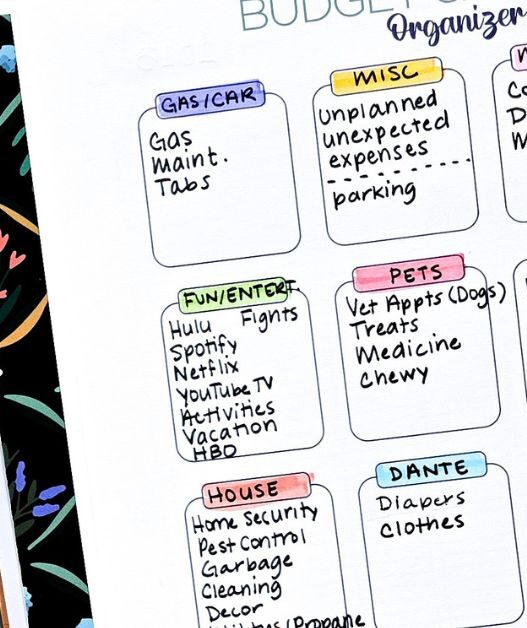 BUDGET
Organizer
GAS/CAR
Gas
Maint.
Tabs
MISC
unplanned
unexpected
expenses
parking
FUN/ENTERT.
Hulu Fights
Spotify
Netflix
YouTube TV
Activities
Vacation
HBO
PETS
Vet Appts (Dogs)
Treats
Medicine
Chewy
HOUSE
Home Security
Pest Control
Garbage
Cleaning
Decor
Utilities/Propane
DANTE
Diapers
Clothes